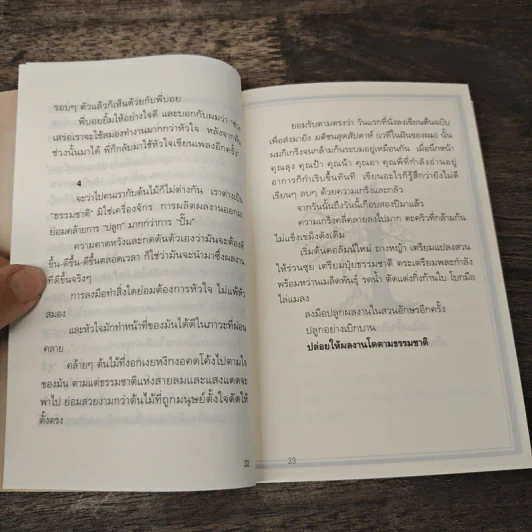 รอบๆ ตัวแล้วก็เห็นด้วยกับพี่บอย
พี่บอยยิ้มให้อย่างใจดี และบอกกับผมว่า
เสร่อเราจะใช้สมองทำงานมากกว่าหัวใจ หลังจาก
ช่วงนั้นมาได้ พี่ก็กลับมาใช้หัวใจเขียนเพลงอีกครั้ง"
4
จะว่าไปคนเรากับต้นไม้ก็ไม่ต่างกัน เราต่างเป็น
"ธรรมชาติ" มิใช่เครื่องจักร การผลิตผลงานออกมา
ย่อมคล้ายการ "ปลูก" มากกว่าการ "ปั๊ม"
ความคาดหวังและกดดันตัวเองว่ามันจะต้องดี
ขึ้น-ดีขึ้น-ดีขึ้นตลอดเวลา ก็ใช่ว่ามันจะนำมาซึ่งผลงาน
ที่ดีขึ้นจริงๆ
การลงมือทำสิ่งใดย่อมต้องการหัวใจ ไม่แพ้หัว
สมอง
และหัวใจมักทำหน้าที่ของมันได้ดีในภาวะที่ผ่อน
คลาย
คล้ายๆ ต้นไม้ที่งอกเงยหงิกงอคดโค้งไปตามใจ
ของมัน ตามแต่ธรรมชาติแห่งสายลมและแสงแดดจะ
พาไป ย่อมสวยงามกว่าต้นไม้ที่ถูกมนุษย์ตั้งใจดัดให้
ตั้งตรง
22
ยอมรับตามตรงว่า วันแรกที่นั่งลงเขียนต้นฉบับ
เพื่อส่งมายัง มติชนสุดสัปดาห์ (เวทีในฝันของผม) นั้น
ผมก็เกร็งจนกล้ามกระตุกอยู่เหมือนกัน เมื่อนึกหน้า
คุณลุง คุณป้า คุณน้า คุณอา คุณพี่ที่กำลังอ่านอยู่
อาการก็กำเริบขึ้นทันที เขียนอะไรก็รู้สึกว่ายังไม่ดี
เขียนๆ ลบๆ ด้วยความเกร็งและกลัว
จากวันนั้นถึงวันนี้ก็เกือบสองปีมาแล้ว
ความเกร็งคลี่คลายลงไปมาก ตะคริวที่กล้ามก้น
ไม่แข็งเขม็งดังเดิม
เริ่มต้นคอลัมน์ใหม่ ถางหญ้า เตรียมแปลงสวน
ให้ร่วนซุย เตรียมปุ๋ยธรรมชาติ ตระเตรียมพละกำลัง
พร้อมหว่านเมล็ดพันธุ์ รดน้ำ ตัดแต่งกิ่งก้านใบ โบกมือ
ไล่แมลง
ลงมือปลูกผลงานในสวนอักษรอีกครั้ง
ปลูกอย่างเบิกบาน
ปล่อยให้ผลงานโตตามธรรมชาติ
23